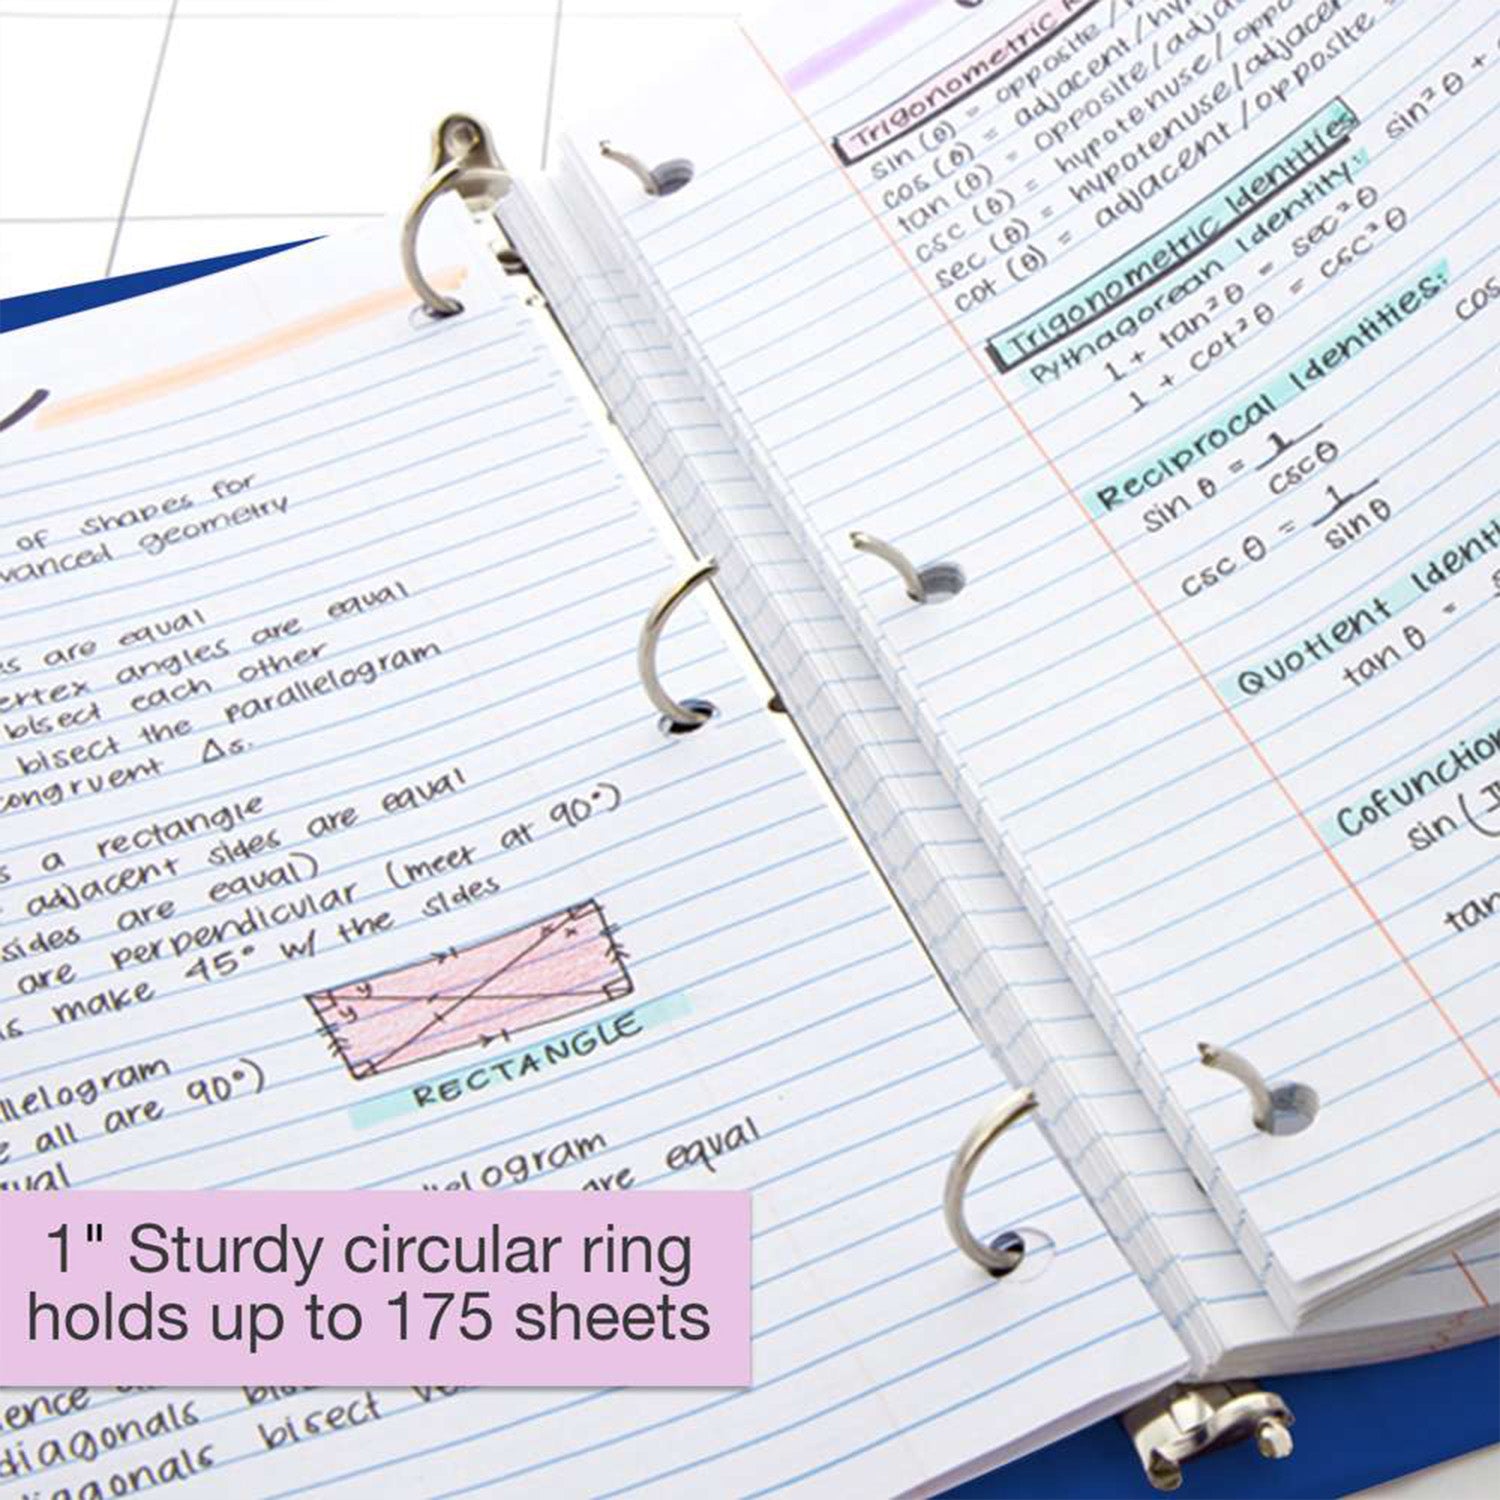 of shapes for
vanced geometry
are equal
vertex angles are equal
bisect each other
bisect the parallelogram
congruent Δs.
a rectangle
adjacent sides are equal
sides are equal)
are perpendicular (meet at 90°)
make 45° w/ the sides
RECTANGLE
llelogram
all are 90°)
ual
elogram
are equal
1" Sturdy circular ring
holds up to 175 sheets
ence
diagonals
diagonals bisect
Trigonometric
sin (θ) = opposite /
cos (θ) = adjacent/hy
tan (θ) = opposite/adja
csc (θ) = hypotenuse/oppo
sec (θ) = hypotenuse/adjacen
cot (θ) = adjacent/opposite
Trigonometric Identities
Pythagorean Identity: sin²θ +
1 + tan²θ = sec²θ
1 + cot²θ = csc²θ
Reciprocal Identities:
sin θ = 1/cscθ
cos
csc θ = 1/sinθ
Quotient Identi
tan θ =
Cofunction
sin (
tan